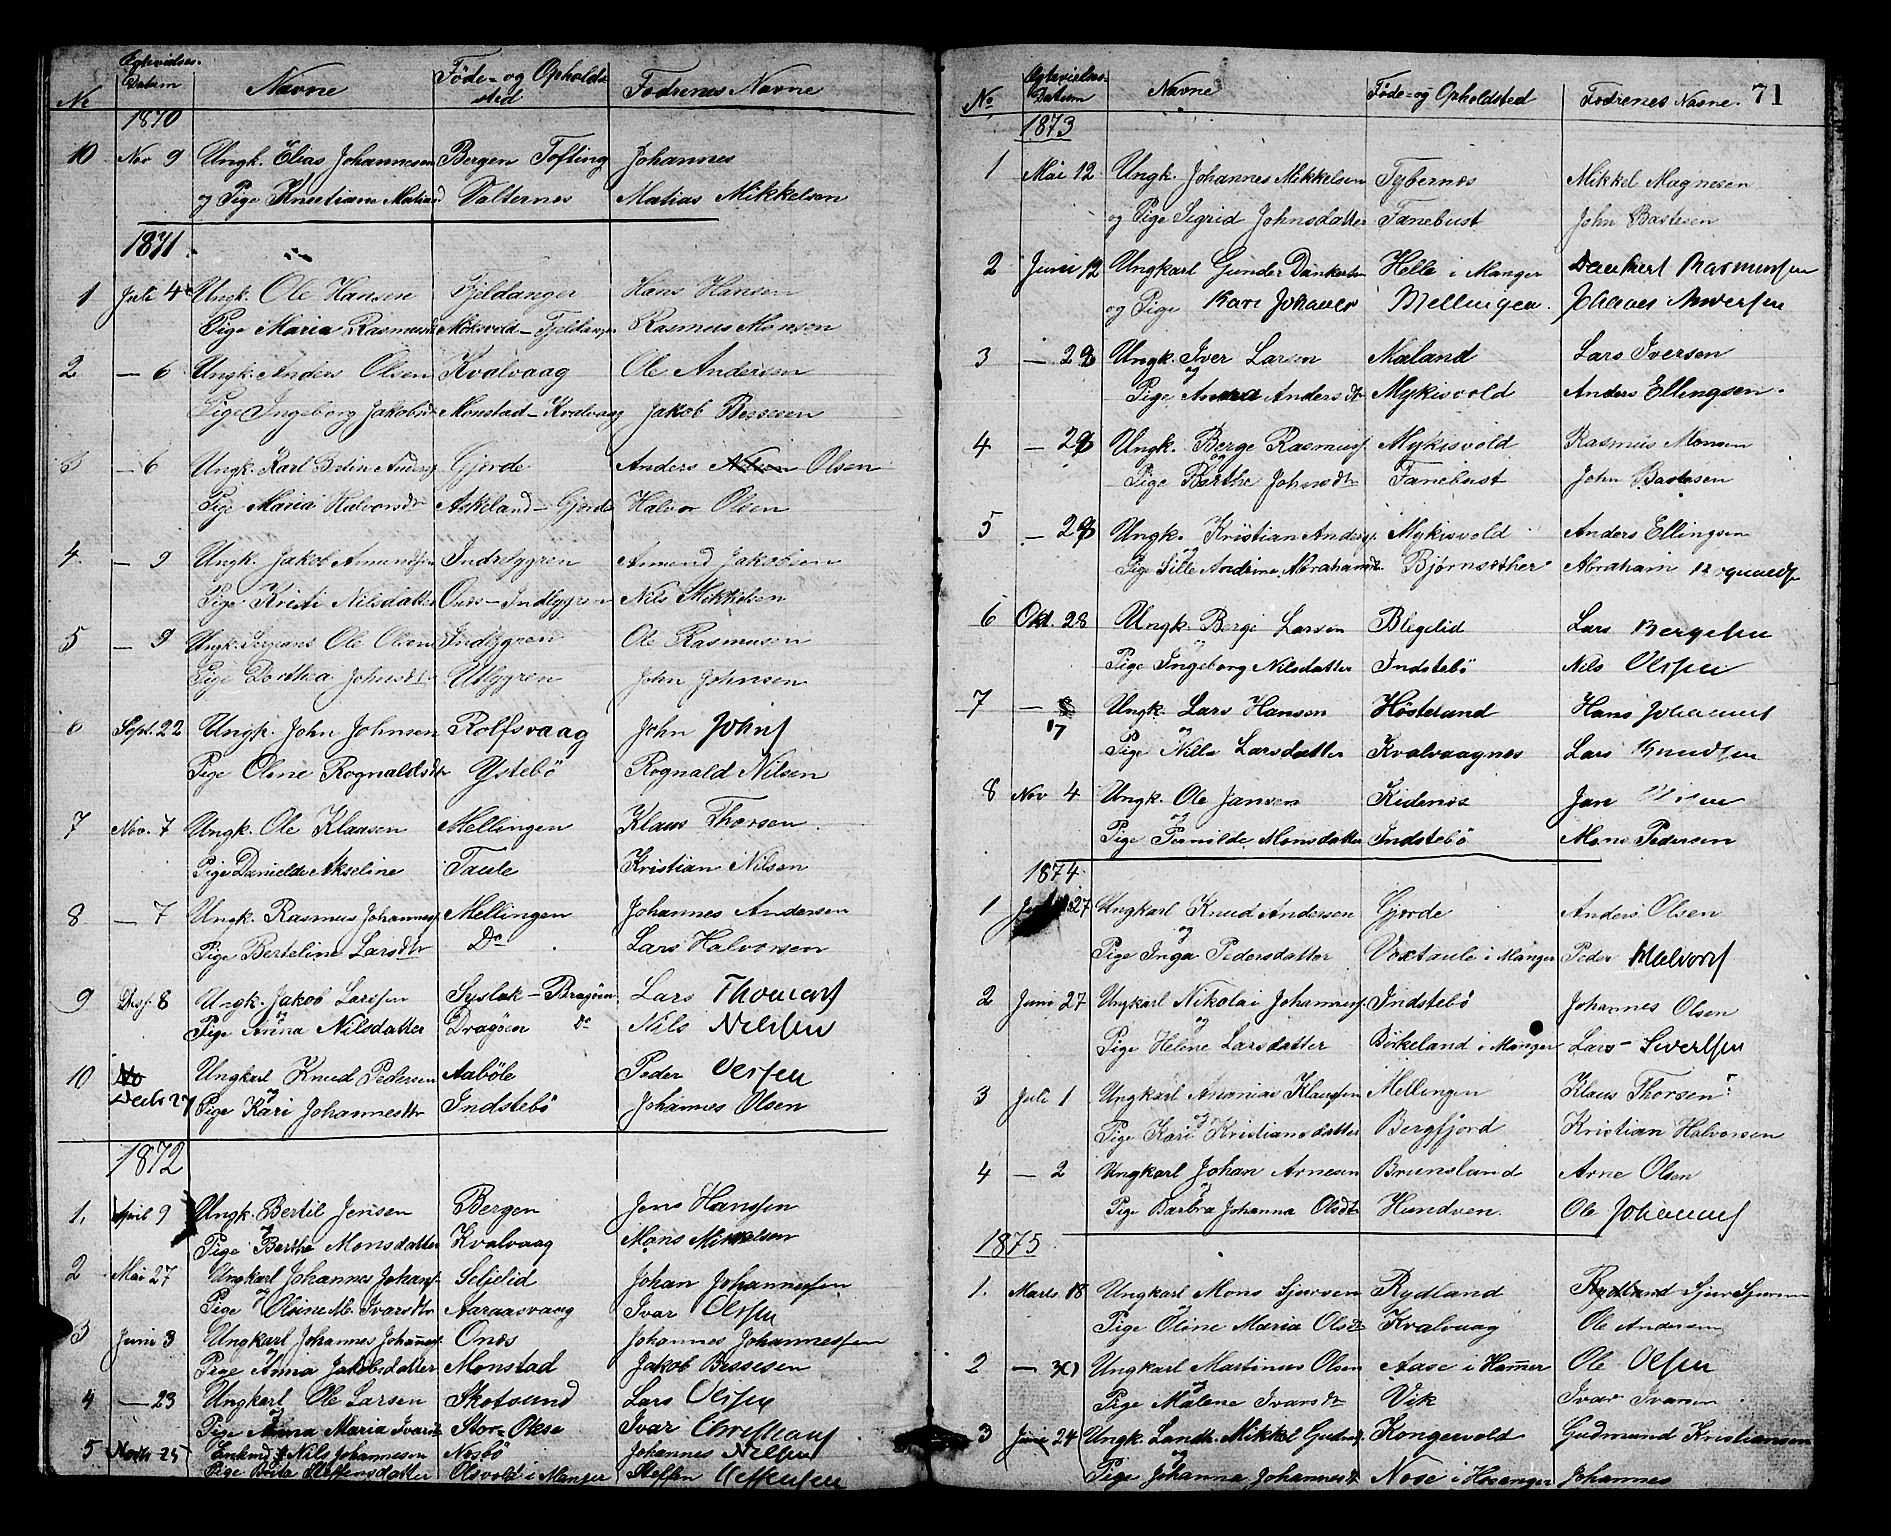 Egtevielses-
No Datum Navne Föde- og Opholds- Fædrenes Navne
sted
1870
10 Nov 9 Ungk. Elias Johannesen Bergen Tofting Johannes
og Pige Kristiane Matiasd Valternes Matias Mikkelsen
1871.
1 Juli 4 Ungk. Ole Hansen Fjeldanger Hans Hansen
Pige Maria Rasmusdt Moksvold - Fjeldanger Rasmus Monsen
2 — 6 Ungk. Anders Olsen Kvalvaag Ole Andersen
Pige Ingeborg Jakobsdt Monstad - Kvalvaag Jakob Bessesen
3 — 6 Ungk. Karl Botin Anders Gjerde Anders Olsen
Pige Maria Halvorsdtr Askeland - Gjerde Halvor Olsen
4. — 9 Ungk. Jakob Amundsen Indrelygren Amund Jakobsen
Pige Kristi Nilsdatter Ones - Indlygren Nils Mikkelsen
5 — 9 Ungk. Ole Olsen Indlygren Ole Rasmusen
Pige Dorthea Johnsdtr Utlygren John Johnsen
6 Sept. 22 Ungk. John Johnsen Rolfsvaag John Johns
Pige Oline Rognaldsdtr Ystebö Rognald Nilsen
7 Nov. 7 Ungk. Ole Klausen Mellingen Klaus Thorsen
Pige Danielde Akseline Taule Kristian Nilsen
8 — 7 Ungk. Rasmus Johannes Mellingen Johannes Andersen
Pige Berteline Larsdtr Do Lars Halvorsen
9 8 Ungk. Jakob Larssen Syslak - Bragöen Lars Thomas
og
Pige Anna Nilsdatter Dragöen Do Nils Nilssen
10 Ungkarl Knud Pedersen Aaböle Peder Olssen
Decbr 27 og
Pige Kari Johannesdtr Indstebö Johannes Olsen
1872
1. April 9 Ungk. Bertil Jensen Bergen Jens Hanssen
og
Pige Berthe Monsdatter Kvalvaag Mons Mikkelsen
2 Mai 27 Ungkarl Johannes Johans Seljelid Johan Johannessen
og
Pige Oline M. Ivarsdtr Aaraasvaag Ivar Olssen
3 Juni 3 Ungkarl Johannes Johannes Ones Johannes Johannessen
og
Pige Anna Jakobsdatter Monstad Jakob Bessesen
4 — 23 Ungkarl Ole Larsen Skotsund Lars Olssen
og
Pige Anna Maria Ivarsdt Stor-Okse Ivar Christians
5 25 Enkmd Nils Johannesen Nesbö Johannes Nilssen
Pige Brita Steffensdatter Olsvold i Manger Steffen Steffensen
71
Egtevielses-
No Datum Navne Föde- og Opholdsted Fædrenes Navne.
1873
1 Mai 12 Ungk. Johannes Mikkelsen Tybernes Mikkel Magnesen
og Pige Sigrid Johnsdatter Fanebust John Bastesen
2 Juni 12 Ungkarl Gunder Dankertsen Helle i Manger Dankert Rasmussen
og Pige Kari Johannes Mellingen. Johannes Andersen
3 — 29 Ungk. Iver Larsen Noland Lars Iversen
og
Pige Anna Andersdtr Mykisvold Anders Ellingsen.
4 — 29 Ungk. Berge Rasmuss Mykisvold Rasmus Monsen
og
Pige Barthe Johnsdtr Fanebust John Bastesen
5 — 29 Ungk. Kristian Anders Mykisvold Anders Ellingsen
og
Pige Sille Andrine Abrahamsdt Bjørnsether Abraham
6 Okt. 28 Ungk. Berge Larsen Bligelid Lars Bergesen
Pige Ingeborg Nilsdatter Indstebö Nils Olssen
7 — 17 Ungk. Lars Hansen Hösteland Hans Johannes
og
Pige Nille Larsdatter Kvalvaagnes Lars Knudsen
8 Nov 4 Ungk. Ole Jansen Kidenes Jan
og
Pige Pernilde Monsdatter Indstebö Mons Pedersen
1874
1 27 Ungkarl Knud Andersen Gjerde Anders Olsen
og
Pige Inga Pedersdatter Voxtaule i Manger Peder Halvors
2 Juni 27 Ungkarl Nikolai Johannes Indstebö Johannes Olsen
og
Pige Helene Larsdatter Börkeland i Manger Lars Sivertsen
3 Juli 1 Ungkarl Ananias Klaussen Mellingen Klaus Thorsen
og
Pige Kari Kristiansdatter Bergfjord Kristian Halvorsen
4 — 2 Ungkarl Johan Arnesen Brunsland Arne Olsen
og
Pige Barbra Johanna Olsdt Hundven. Ole Johannes
1875
1. Marts 18 Ungkarl Mons Sjursen Rydland Sjur Sjursen
og
Pige Oline Maria Olsdt Kvalvaag Ole Andersen
2 — 30 Ungkarl Martinus Olsen Aase i Hamer Ole Olssen
og
Pige Malene Ivarsdt Vik Ivar Ivarsen
3 Juni 24 Ungk. Landh. Mikkel Gudm Kongevold Gudmund Kristiansen
og
Pige Johanna Johannesdt Nose i Hosanger Johannes